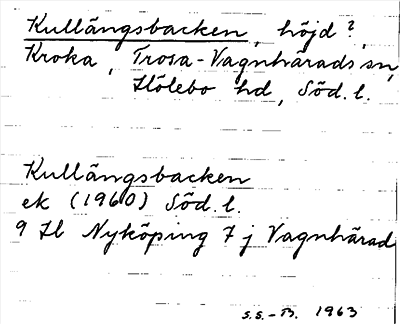 Kullängsbacken, höjd?,
Kroka, Trosa-Vagnhärads sn,
Hölebo hd, Söd. l.
Kullängsbacken
ek (1960) Söd. l.
9 H b Nyköping 7 j Vagnhärad
S.S.-B. 1963